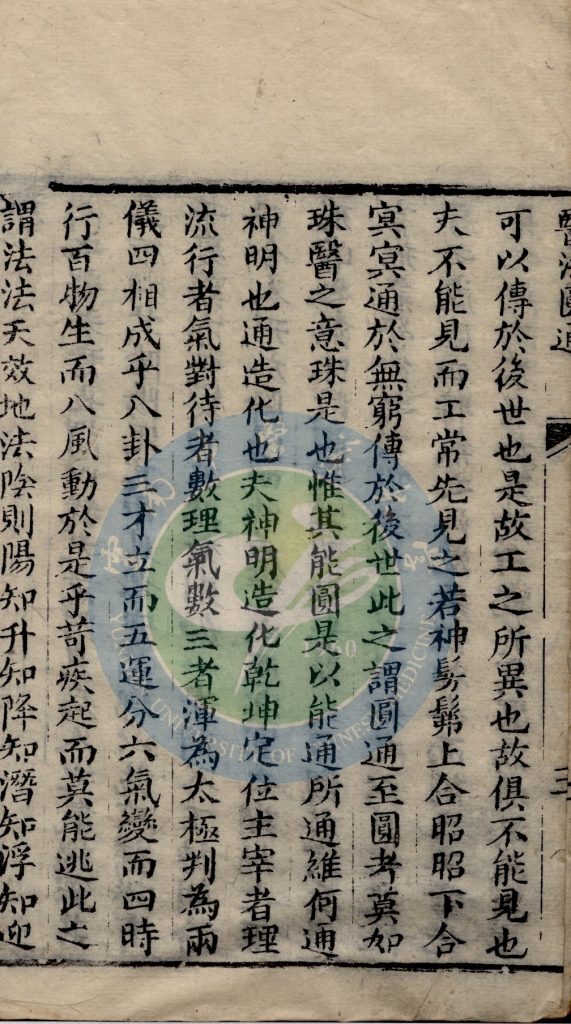 醫法圓通
三
可以傳於後世也是故工之所異也故俱不能見也
夫不能見而工常先見之若神髣髴上合昭昭下合
冥冥通於無窮傳於後世此之謂圓通至圓者莫如
珠醫之意珠是也惟其能圓是以能通所通維何通
神明也通造化也夫神明造化乾坤定位主宰者理
流行者氣對待者數理氣數三者渾為太極判為兩
儀四相成乎八卦三才立而五運分六氣變而四時
行百物生而八風動於是乎苛疾起而莫能逃此之
謂法法天效地法陰則陽知升知降知潛知浮知迎